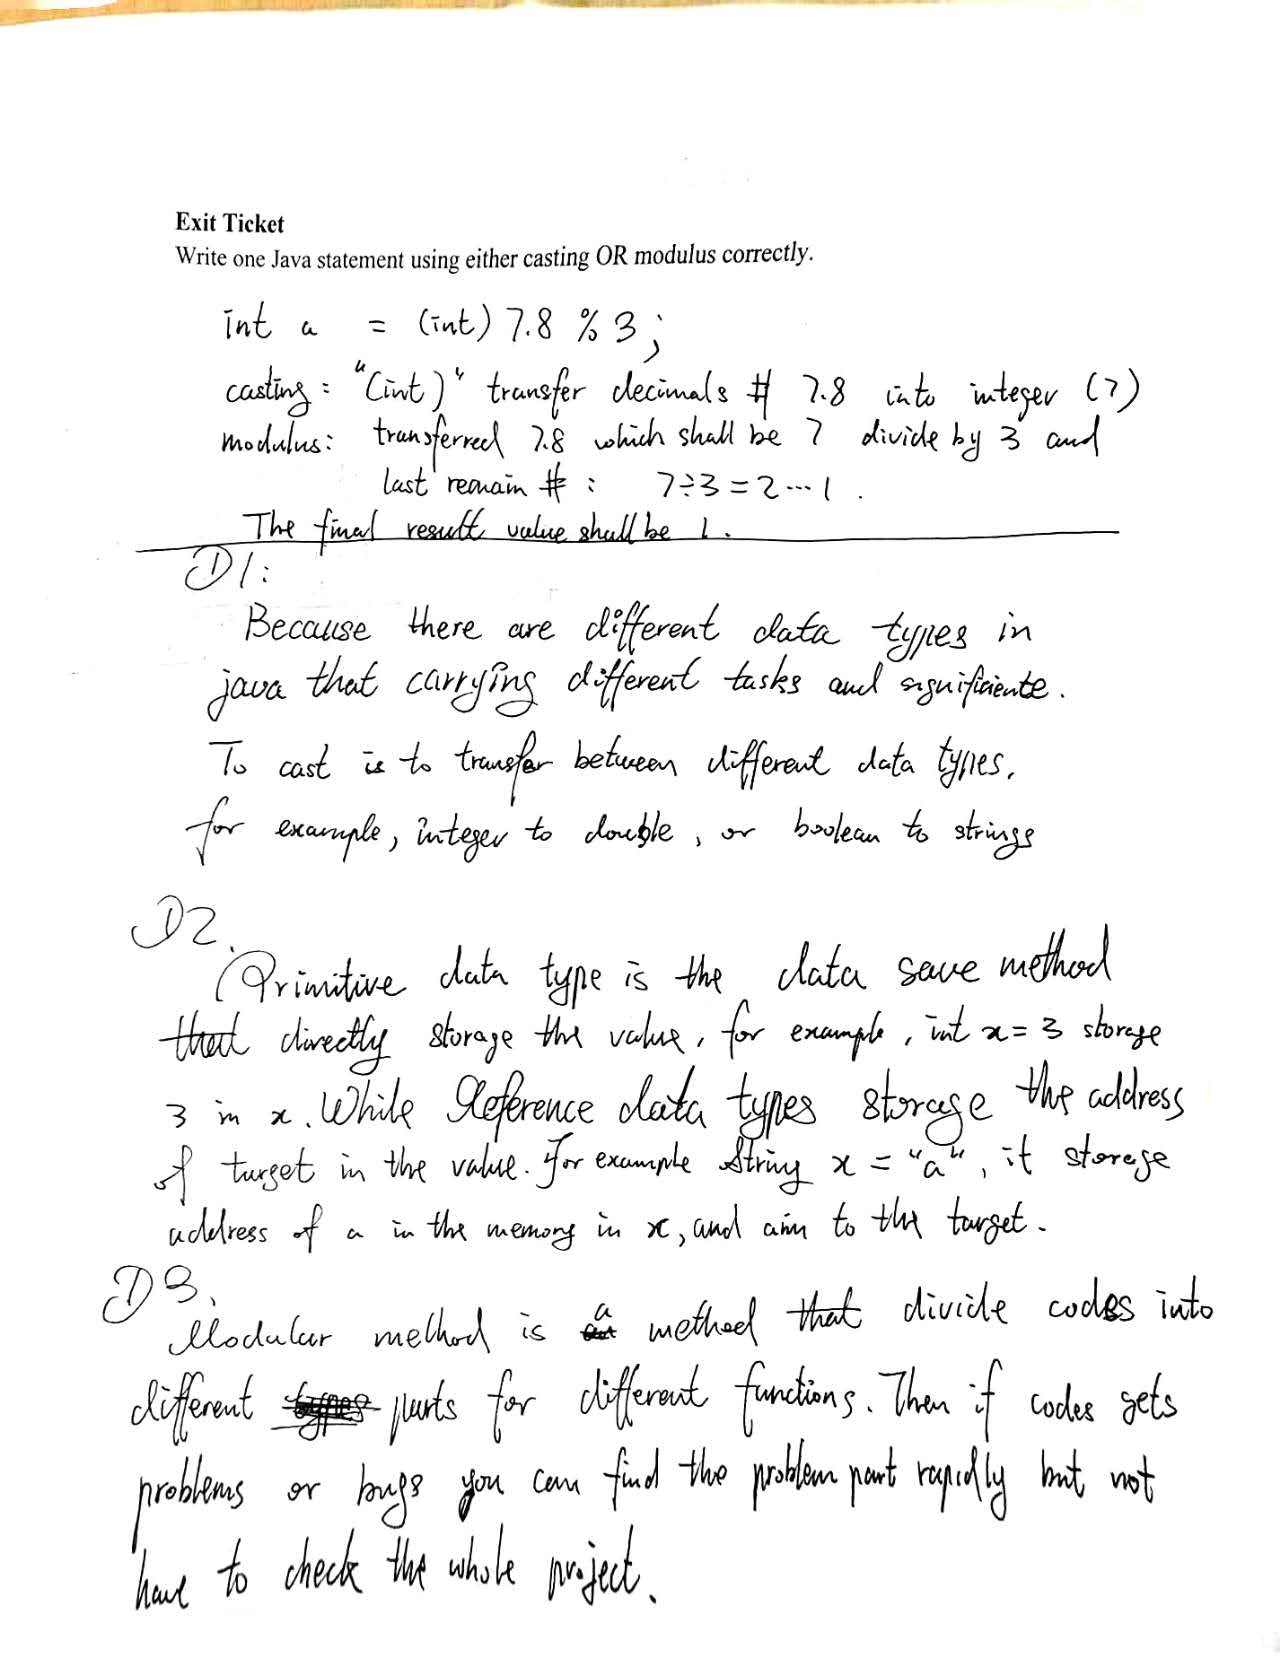 Exit Ticket
Write one Java statement using either casting OR modulus correctly.
int a = (int) 7.8 % 3;
casting: "(int)" transfer decimals # 7.8 into integer (7)
modulus: transferred 7.8 which shall be 7 divide by 3 and
last remain #: 7÷3=2...1.
The final result value shall be 1.
D1:
Because there are different data types in
java that carrying different tasks and significiente.
To cast is to transfer between different data types.
for example, integer to double, or boolean to strings
D2.
Primitive data type is the data save method
that directly storage the value, for example, int x=3 storage
3 in x. While Reference data types storage the address
of target in the value. For example String x = "a", it storage
address of a in the memory in x, and aim to the target.
D3.
Modular method is a method that divide codes into
different parts for different functions. Then if codes gets
problems or bugs you can find the problem part rapidly but not
have to check the whole project.